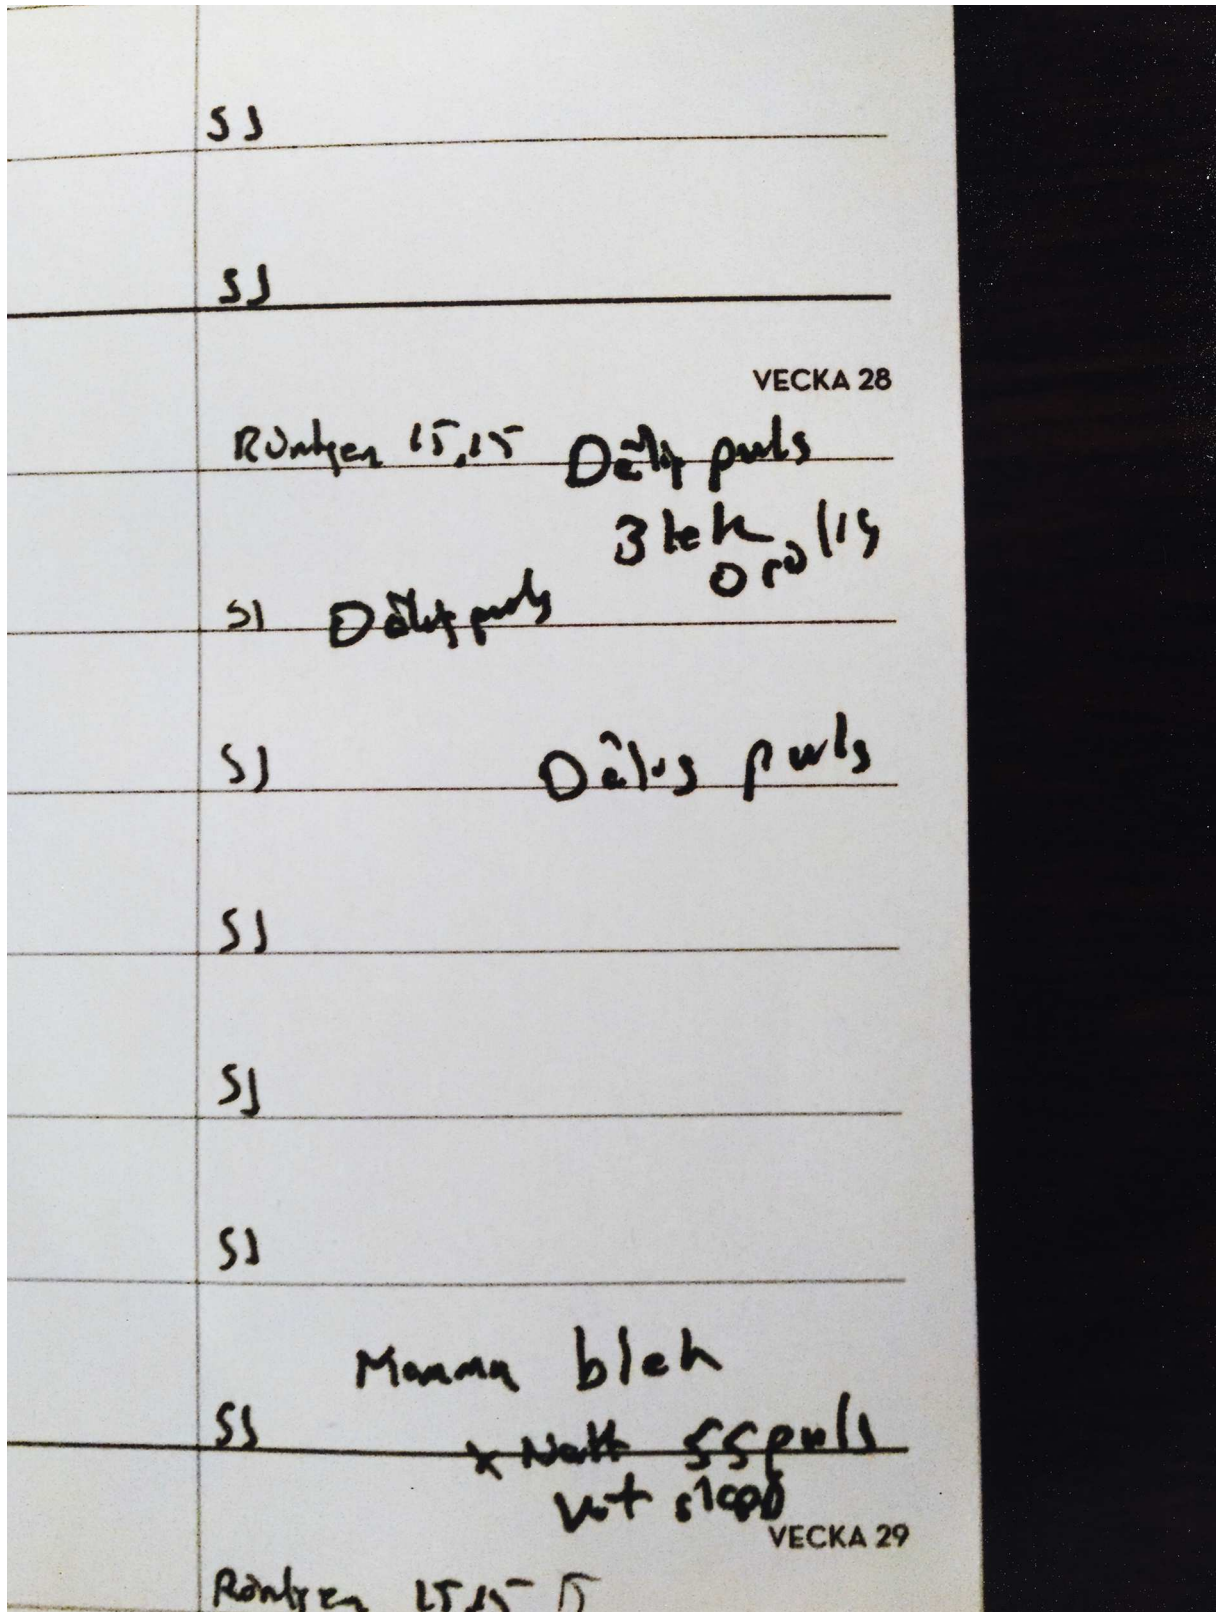 SJ
SJ
VECKA 28
Röntgen 15.15 Dålig puls
Blek
Orolig
SJ Dålig puls
SJ Dålig puls
SJ
SJ
SJ
Mamma blek
SJ x Natt 55 puls
VECKA 29
Röntgen 15.15